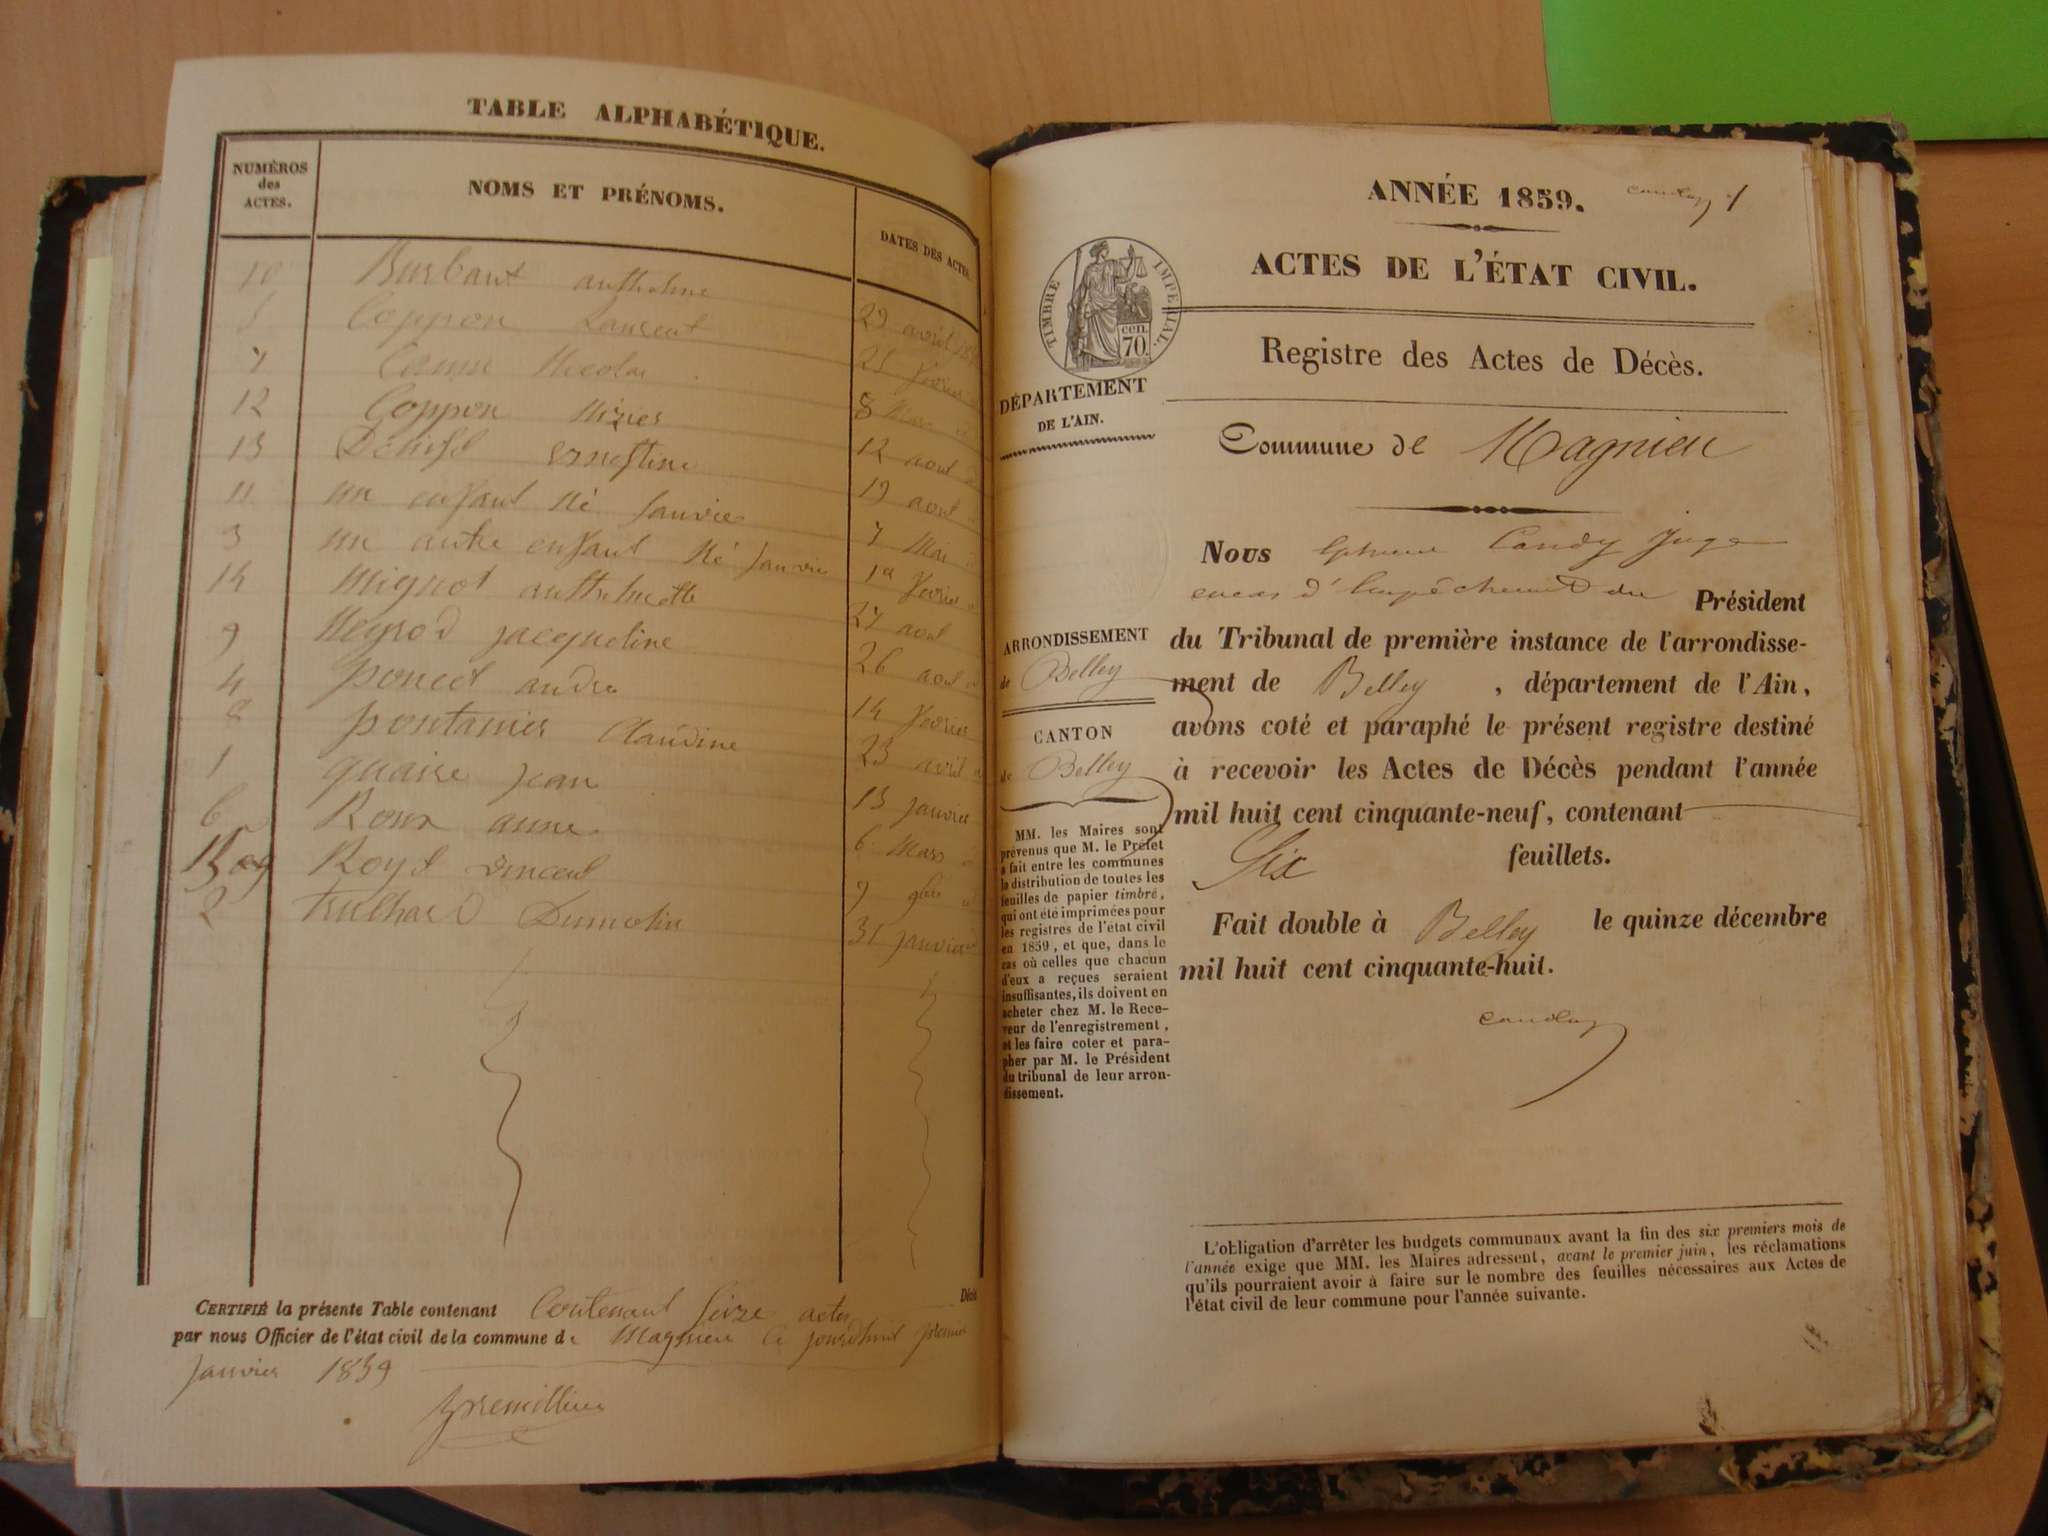 TABLE ALPHABÉTIQUE.
NUMÉROS des ACTES.
NOMS ET PRÉNOMS.
DATES DES ACTES
10 Burbant
5 Coppon Laurent 21 fevrier
7 8 Mars
12 Coppon 12 aout
13 19 aout
11 un enfant né 7 Mai
3 un autre enfant né 1er fevrier
14 Mignot 27 aout
9 jacqueline 26
4 poncet andre 14 fevrier
8 pontanier Claudine 23 avril
1 quaire jean 13 janvier
6 Roux anne 6 Mars
15 Royet vincent 9
2 31 janvier
CERTIFIÉ la présente Table contenant Contenant seize actes Décès
par nous Officier de l'état civil de la commune de Magnieu jourdhuit premier
janvier 1859
ANNÉE 1859.
candy 1
ACTES DE L'ÉTAT CIVIL.
TIMBRE IMPÉRIAL.
cen.
70.
Registre des Actes de Décès.
DÉPARTEMENT
DE L'AIN.
Commune de Magnieu
Nous Candy Juge
en cas d'empêchement du Président
ARRONDISSEMENT
de Belley
CANTON
de Belley
du Tribunal de première instance de l'arrondisse-
ment de Belley, département de l'Ain,
avons coté et paraphé le présent registre destiné
à recevoir les Actes de Décès pendant l'année
mil huit cent cinquante-neuf, contenant
Six feuillets.
Fait double à Belley le quinze décembre
mil huit cent cinquante-huit.
candy
MM. les Maires sont
prévenus que M. le Préfet
a fait entre les communes
la distribution de toutes les
feuilles de papier timbré,
qui ont été imprimées pour
les registres de l'état civil
en 1859, et que, dans le
cas où celles que chacun
d'eux a reçues seraient
insuffisantes, ils doivent en
acheter chez M. le Rece-
veur de l'enregistrement,
et les faire coter et para-
pher par M. le Président
du tribunal de leur arron-
dissement.
L'obligation d'arrêter les budgets communaux avant la fin des six premiers mois de
l'année exige que MM. les Maires adressent, avant le premier juin, les réclamations
qu'ils pourraient avoir à faire sur le nombre des feuilles nécessaires aux Actes de
l'état civil de leur commune pour l'année suivante.